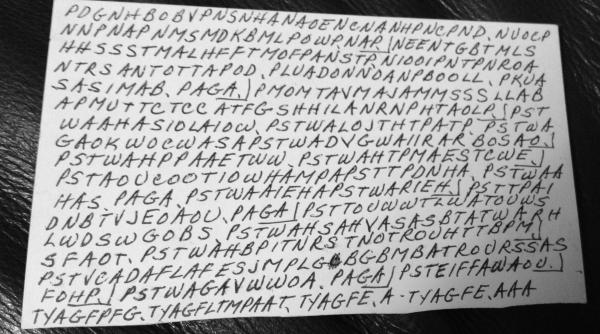 PDGNHBOBVPNSNHANAOENCNANHPNCPND. NUOCP
NNPNAPNMSMDKBMLPOWP. NAP.|NEENTGBTMLS
HHSSSTMALHFFTMOFPANSTP. NIOOIPNTPNROA
NTRSANTOTTAPOD. PLUADONNOANPBOOLL. PKUA
SASIMAB. PAGA.|PMOMTAVMAJAMMSSSLLAB
APMUTTCTCC ATFGSHHILANRNPHTAOLP.|PST
WAAHASIOLAIOW. PSTWALOJTHTPATP. PSTWA
GAOKWOCWASAPSTWADVGWAIIRARBOSAO.|
PSTWAHPPAAETWW. PSTWAHTPMAESTCWE.|
PSTAOUCOOTIOWHAMPAPSTTPDNHA. PSTWAA
HAS. PAGA. PSTWAAIEHAPSTWARIEH.|PSTTPAI
DNBTVJEOAOU. PAGA|PSTTOUWWTLWATOUWS
LWDSWGOBS. PSTWAHSAHVASASBTATWARH
SFAOT. PSTWAHBPITNRSTNOTROUHTTBPM.|
PSTVCADAFLAFESJMPLGBGBMBATROURSSAS
FOHP.|PSTWAGAVWWOA. PAGA|PSTEIFFAWAOU.|
TYAGFPFG. TYAGFLTMPAAT. TYAGFE. A-TYAGFE. AAA